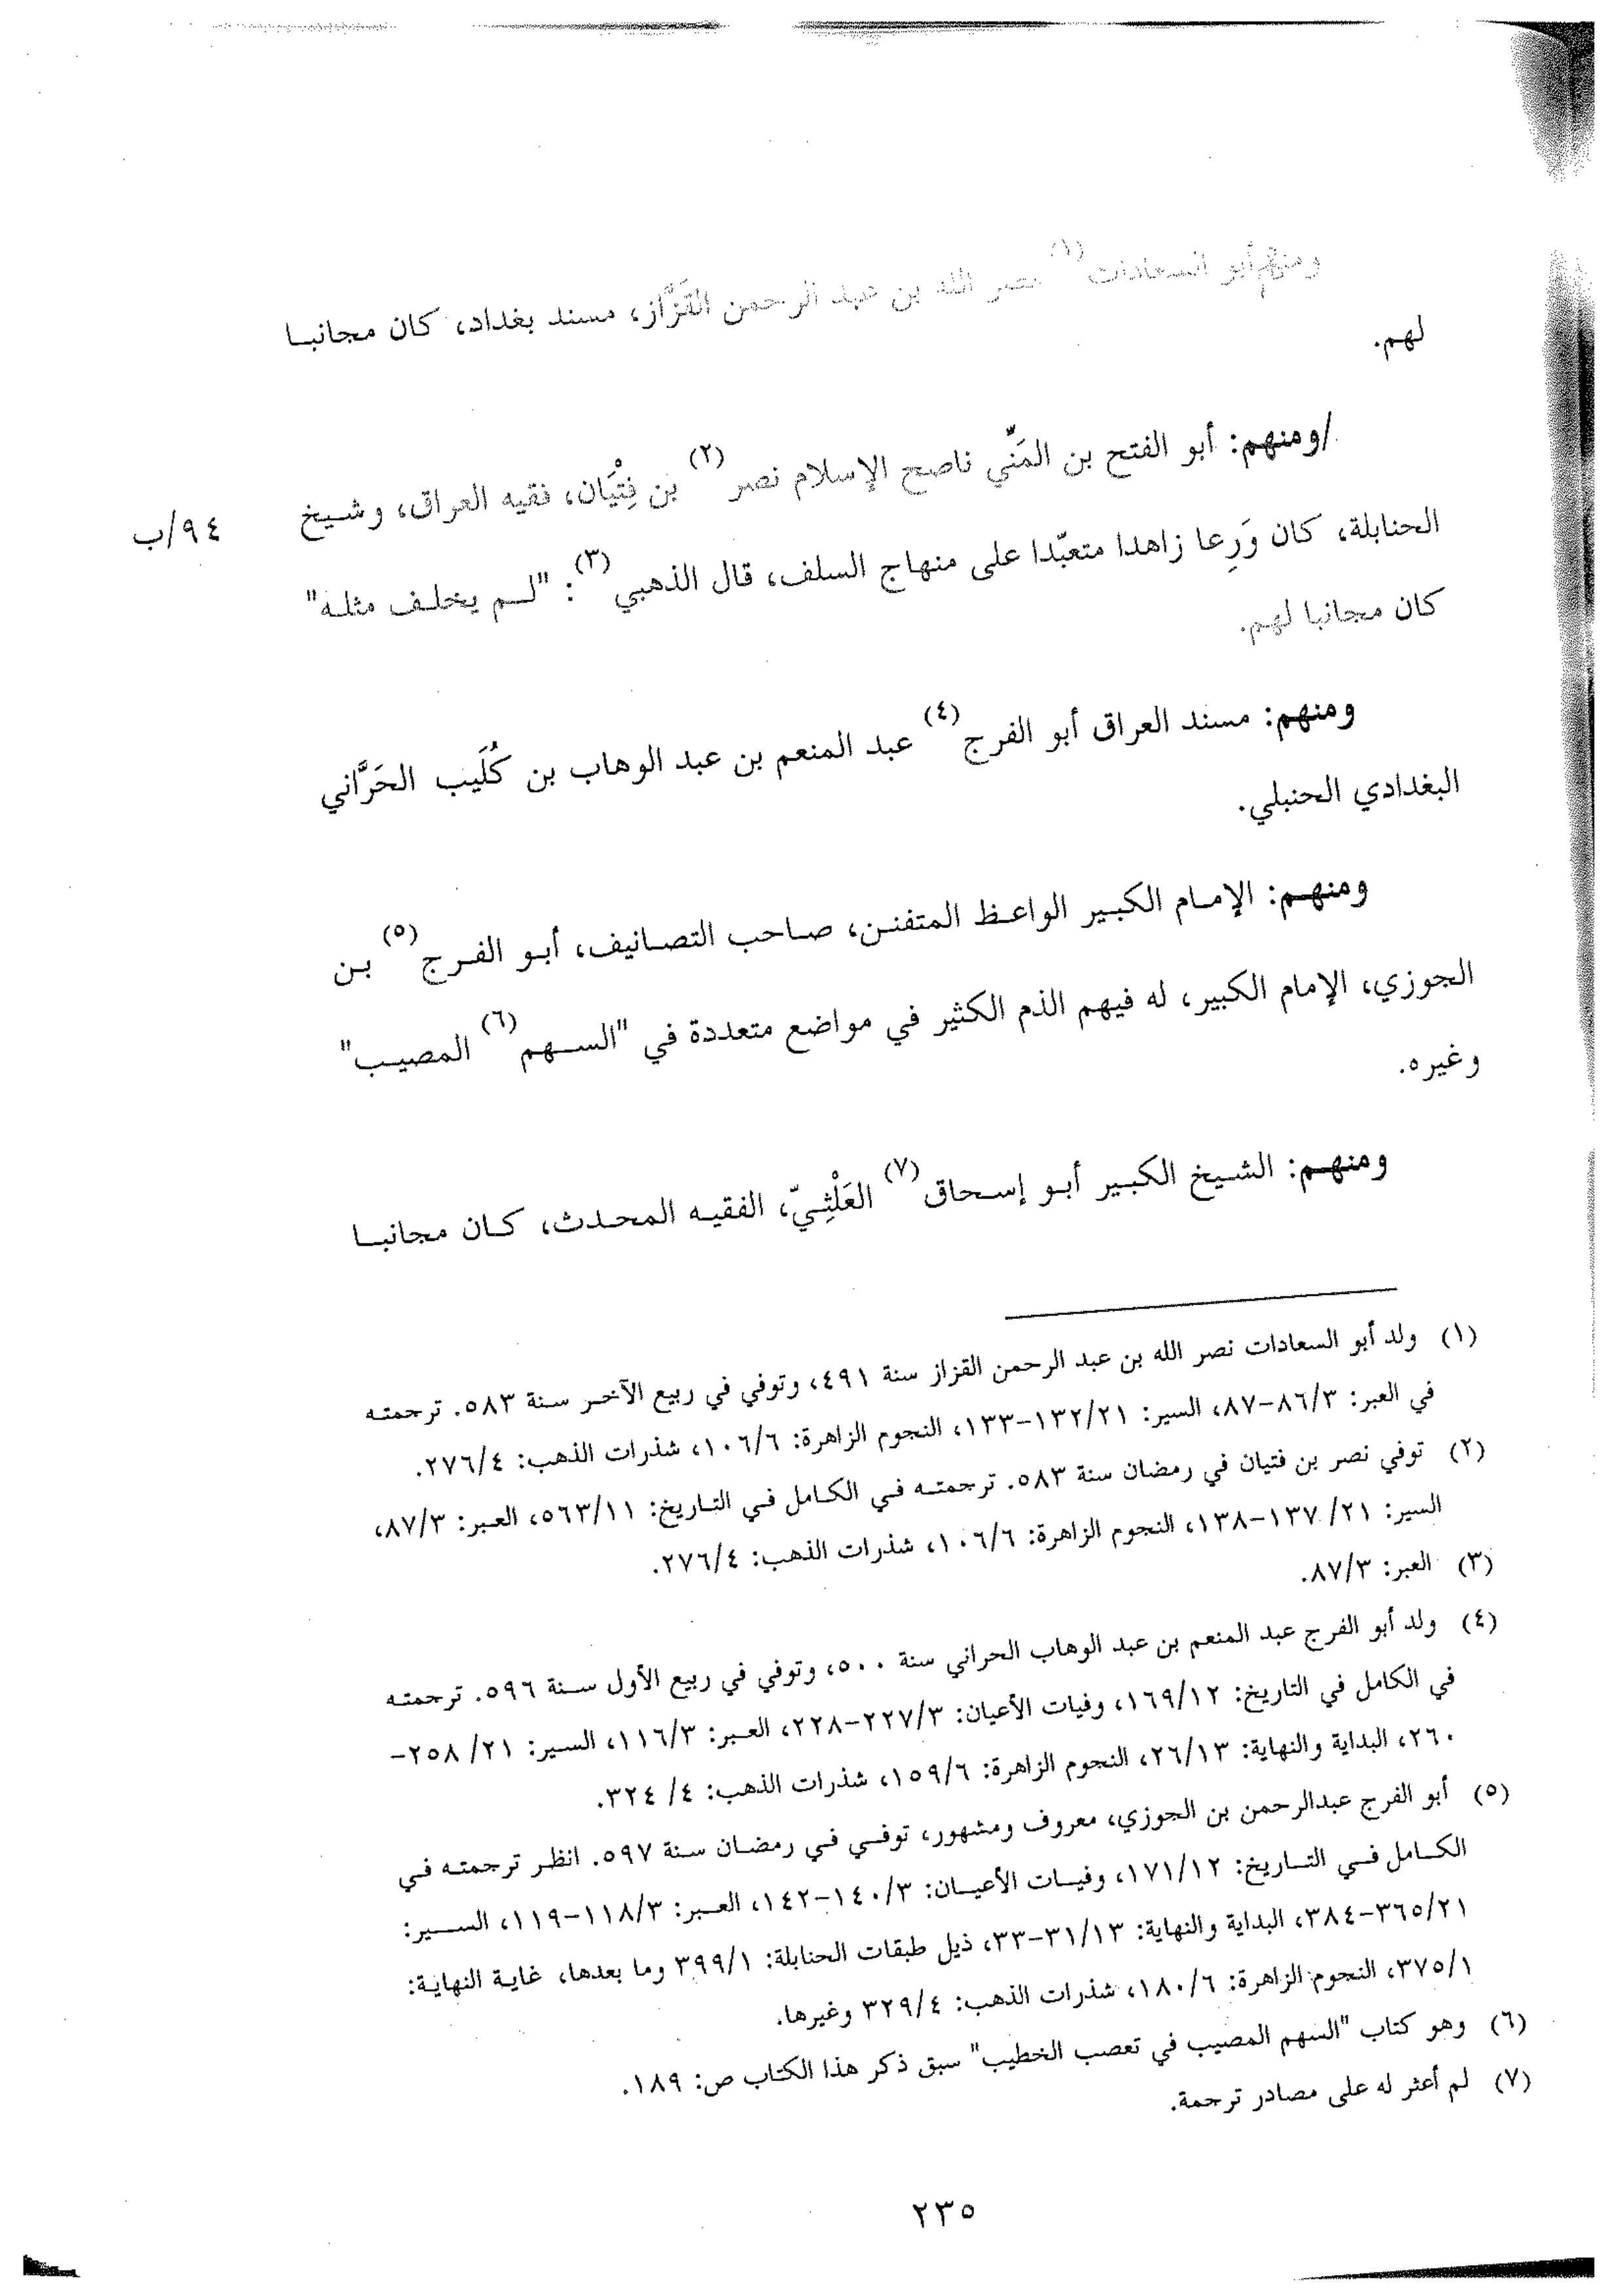 ومنهم أبو السعادات(١) نصر الله بن عبد الرحمن القَزَّاز، مسند بغداد، كان مجانبا
لهم.
/ومنهم: أبو الفتح بن المَنِّي ناصح الإسلام نصر(٢) بن فِتْيَان، فقيه العراق، وشيخ
٩٤/ب
الحنابلة، كان وَرِعا زاهدا متعبّدا على منهاج السلف، قال الذهبي(٣): "لم يخلف مثله"
كان مجانبا لهم.
ومنهم: مسند العراق أبو الفرج(٤) عبد المنعم بن عبد الوهاب بن كُلَيب الحَرَّاني
البغدادي الحنبلي.
ومنهم: الإمام الكبير الواعظ المتفنن، صاحب التصانيف، أبو الفرج(٥) بن
الجوزي، الإمام الكبير، له فيهم الذم الكثير في مواضع متعددة في "السهم(٦) المصيب"
وغيره.
ومنهم: الشيخ الكبير أبو إسحاق(٧) العَلْثِيّ، الفقيه المحدث، كان مجانبا
(١) ولد أبو السعادات نصر الله بن عبد الرحمن القزاز سنة ٤٩١، وتوفي في ربيع الآخر سنة ٥٨٣. ترجمته
في العبر: ٨٦/٣-٨٧، السير: ١٣٢/٢١-١٣٣، النجوم الزاهرة: ١٠٦/٦، شذرات الذهب: ٢٧٦/٤.
(٢) توفي نصر بن فتيان في رمضان سنة ٥٨٣. ترجمته في الكامل في التاريخ: ٥٦٣/١١، العبر: ٨٧/٣،
السير: ٢١/ ١٣٧-١٣٨، النجوم الزاهرة: ١٠٦/٦، شذرات الذهب: ٢٧٦/٤.
(٣) العبر: ٨٧/٣.
(٤) ولد أبو الفرج عبد المنعم بن عبد الوهاب الحراني سنة ٥٠٠، وتوفي في ربيع الأول سنة ٥٩٦. ترجمته
في الكامل في التاريخ: ١٦٩/١٢، وفيات الأعيان: ٢٢٧/٣-٢٢٨، العبر: ١١٦/٣، السير: ٢١/ ٢٥٨-
٢٦٠، البداية والنهاية: ٢٦/١٣، النجوم الزاهرة: ١٥٩/٦، شذرات الذهب: ٤/ ٣٢٤.
(٥) أبو الفرج عبدالرحمن بن الجوزي، معروف ومشهور، توفي في رمضان سنة ٥٩٧. انظر ترجمته في
الكامل في التاريخ: ١٧١/١٢، وفيات الأعيان: ١٤٠/٣-١٤٢، العبر: ١١٨/٣-١١٩، السير:
٣٦٥/٢١-٣٨٤، البداية والنهاية: ٣١/١٣-٣٣، ذيل طبقات الحنابلة: ٣٩٩/١ وما بعدها، غاية النهاية:
٣٧٥/١، النجوم الزاهرة: ١٨٠/٦، شذرات الذهب: ٣٢٩/٤ وغيرها.
(٦) وهو كتاب "السهم المصيب في تعصب الخطيب" سبق ذكر هذا الكتاب ص: ١٨٩.
(٧) لم أعثر له على مصادر ترجمة.
٢٣٥